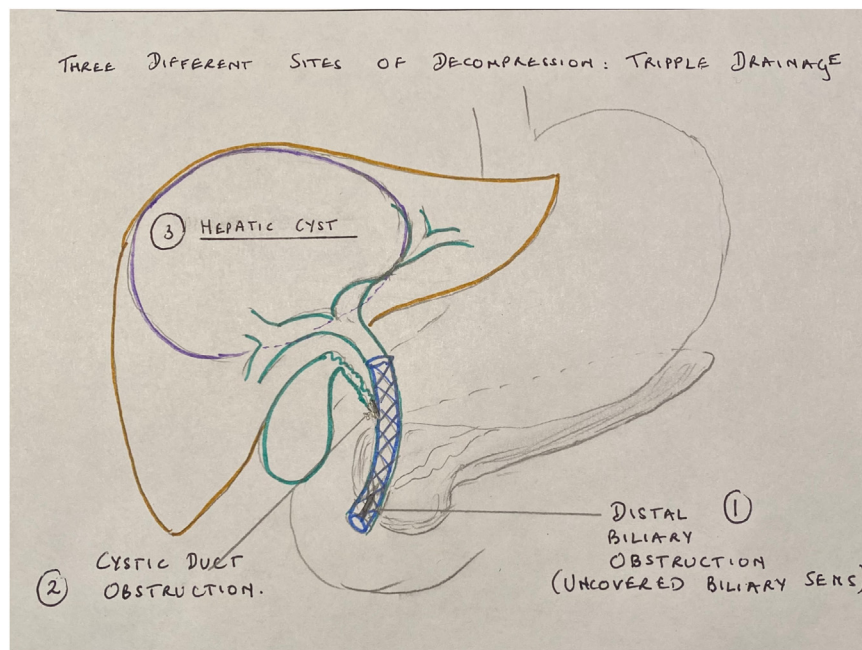 THREE DIFFERENT SITES OF DECOMPRESSION: TRIPPLE DRAINAGE
3 HEPATIC CYST
DISTAL 1
BILIARY
OBSTRUCTION
(UNCOVERED BILIARY SEMS)
CYSTIC DUCT
2 OBSTRUCTION.